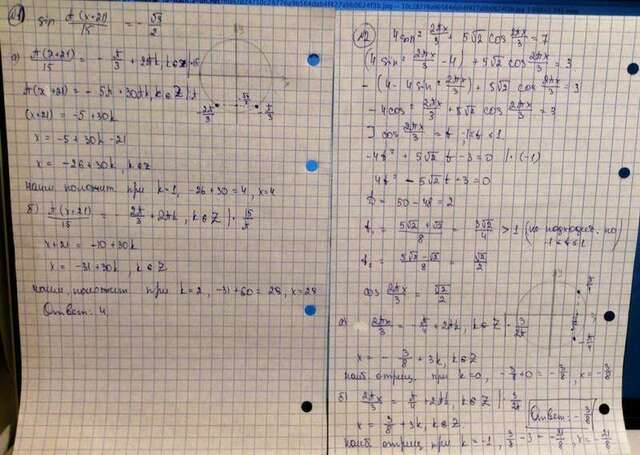 №1 sin π(x+21)/15 = -√3/2
а) π(x+21)/15 = -π/3 + 2πk, k∈Z |·15
π(x+21) = -5π + 30πk, k∈Z |:π
(x+21) = -5 + 30k
x = -5 + 30k - 21
x = -26 + 30k, k∈Z
наим положит при k=1, -26+30 = 4, x=4
б) π(x+21)/15 = -2π/3 + 2πk, k∈Z |· 15/π
x+21 = -10+30k
x = -31+30k, k∈Z
наим. положит при k=2, -31+60 = 29, x=29
Ответ: 4
-2π/3
-π/3
№2 4sin² 2πx/3 + 5√2 cos 2πx/3 = 7
(4sin² 2πx/3 - 4) + 5√2 cos 2πx/3 = 3
-(4 - 4sin² 2πx/3) + 5√2 cos 2πx/3 = 3
-4cos² 2πx/3 + 5√2 cos 2πx/3 = 3
] cos 2πx/3 = t, |t| ≤ 1
-4t² + 5√2 t - 3 = 0 |·(-1)
4t² - 5√2 t + 3 = 0
D = 50 - 48 = 2
t₁ = 5√2 + √2/8 = 3√2/4 > 1 (не подходит. по -1≤t≤1)
t₂ = 5√2 - √2/8 = √2/2
cos 2πx/3 = √2/2
π/4
-π/4
а) 2πx/3 = -π/4 + 2πk, k∈Z |· 3/2π
x = -3/8 + 3k, k∈Z
наиб отриц. при k=0, -3/8+0 = -3/8, x=-3/8
б) 2πx/3 = π/4 + 2πk, k∈Z |· 3/2π
x = 3/8 + 3k, k∈Z
Ответ: -3/8
наиб отриц при k=-1, 3/8 - 3 = -21/8, x=-21/8